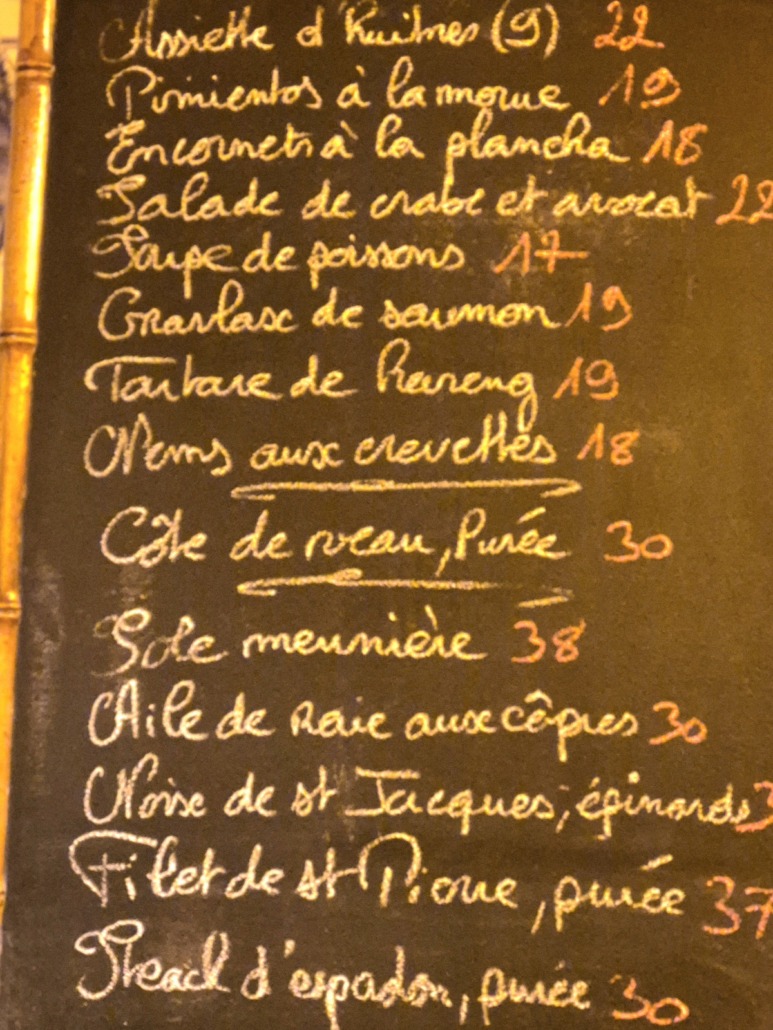 Assiette d'huitres (9) 22
Pimientos à la morue 19
Encornets à la plancha 18
Salade de crabe et avocat 22
Soupe de poissons 17
Gravlax de saumon 19
Tartare de hareng 19
Nems aux crevettes 18
Côte de veau, Purée 30
Sole meunière 38
Aile de raie aux câpres 30
Noix de st Jacques, épinards 3
Filet de st Pierre, purée 37
Steack d'espadon, purée 30